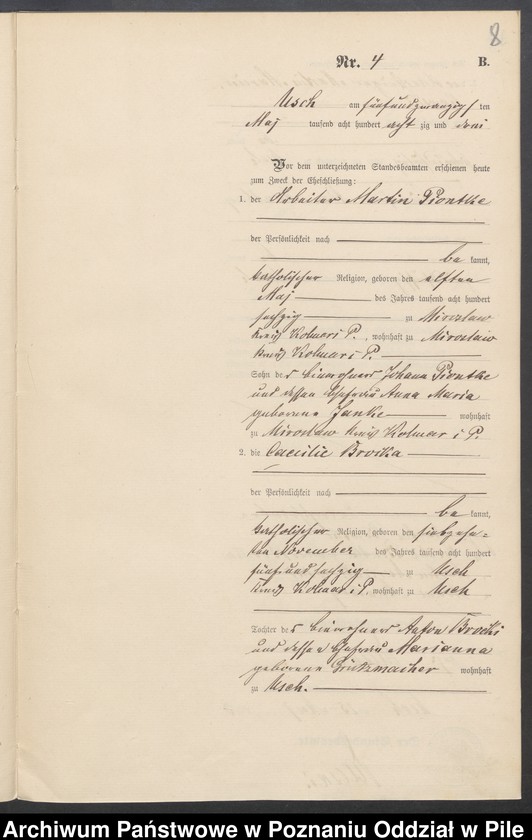 8
Nr. 4 B.
Usch am fünfundzwanzig ten
Maj tausend acht hundert acht zig und drei
Vor dem unterzeichneten Standesbeamten erschienen heute
zum Zweck der Eheschließung:
1. der Arbeiter Martin Piontke
der Persönlichkeit nach
be kannt,
katholischer Religion, geboren den elften
Maj des Jahres tausend acht hundert
sechzig zu Miroslaw
Kreis Kolmar i P., wohnhaft zu Miroslaw
Kreis Kolmar i P.
Sohn des Einwohners Johann Piontke
und dessen Ehefrau Anna Maria
geborene Janke wohnhaft
zu Miroslaw Kreis Kolmar i P.
2. die Caecilie Broika
der Persönlichkeit nach
be kannt,
katholischer Religion, geboren den siebzehn-
ten November des Jahres tausend acht hundert
fünf und sechzig zu Usch
Kreis Kolmar i P. wohnhaft zu Usch
Tochter des Einwohners Anton
und dessen Ehefrau Marianna
geborene Grützmacher wohnhaft
zu Usch.
Archiwum Państwowe w Poznaniu Oddział w Pile